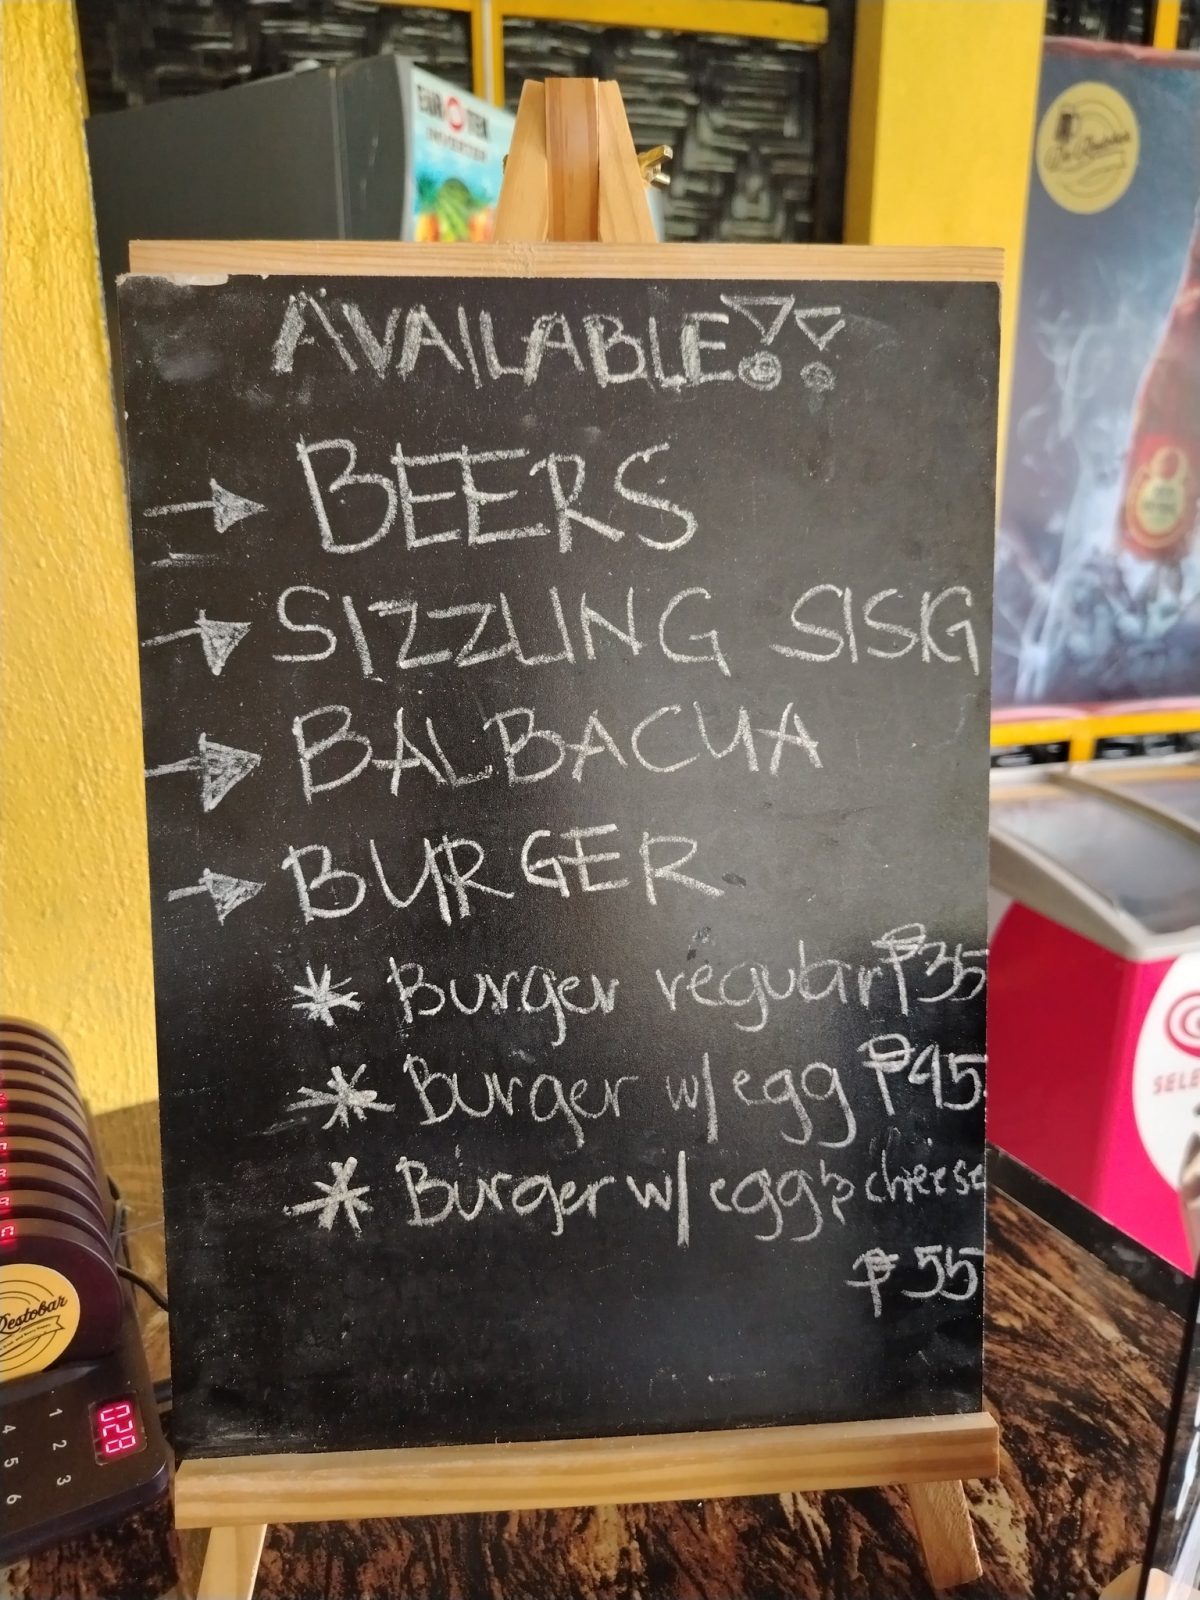 EUROTEK
INVERTER
AVAILABLE!!
BEERS
SIZZLING SISIG
BALBACUA
BURGER
* Burger regular ₱35
* Burger w/ egg ₱45
* Burger w/ egg & cheese
₱55
Restobar
028
1 2 3
4 5 6
SELE